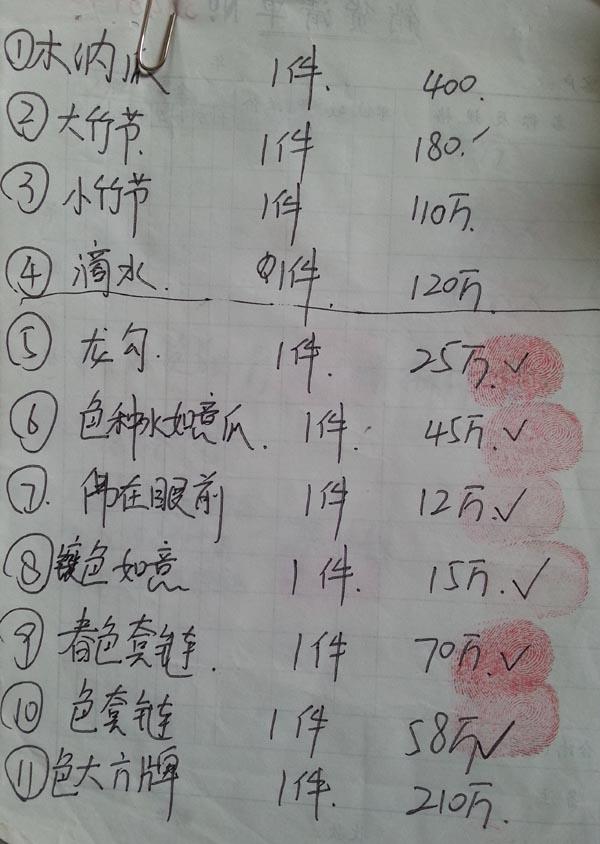 销货清单 No
① 木纳 1件. 400.
② 大竹节. 1件 180.✓
③ 小竹节 1件 110万.
④ 滴水. 1件. 120万.
⑤ 龙勾. 1件. 25万.✓
⑥ 色种水如意瓜. 1件. 45万.✓
⑦. 佛在眼前 1件 12万.✓
⑧ 镶色如意 1件. 15万.✓
⑨ 春色套链. 1件 70万.✓
⑩ 色套链 1件 58万✓
⑪ 色大方牌 1件. 210万.